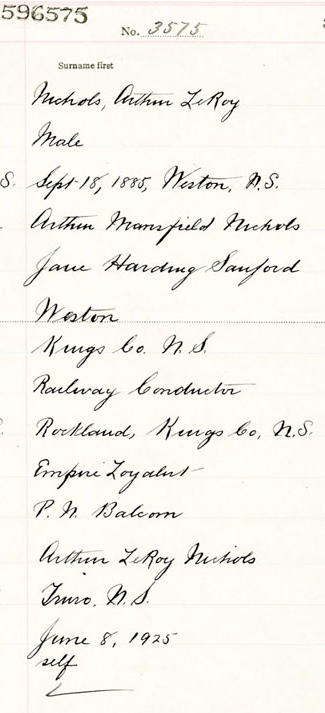 596575
No. 3575
Surname first
Nichols, Arthur LeRoy
Male
S. Sept-18, 1885, Weston, N.S.
Arthur Mansfield Nichols
Jane Harding Sanford
Weston
Kings Co. N.S.
Railway Conductor
Rockland, Kings Co, N.S.
Empire Loyalist
P. N. Balcom
Arthur LeRoy Nichols
Truro, N.S.
June 8, 1925
self